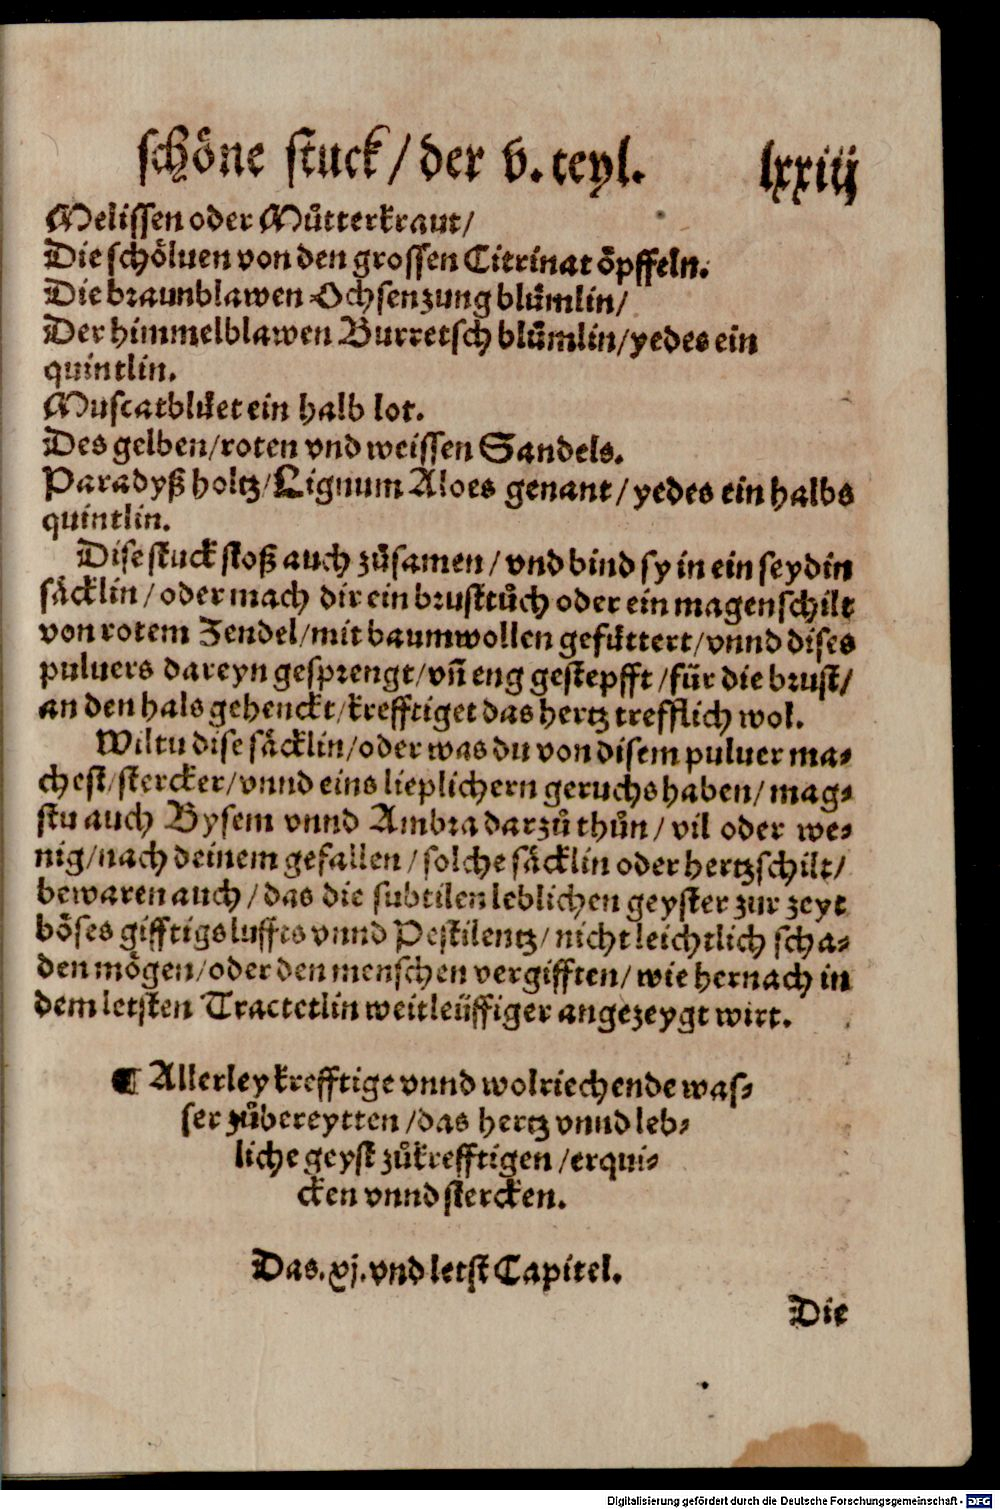 schöne stuck / der v. teyl. lxxiij
Melissen oder Můtterkraut /
Die schöluen von den grossen Citrinat öpffeln.
Die braunblawen Ochsenzung blümlin /
Der himmelblawen Burretsch blümlin / yedes ein
quintlin.
Muscatblüet ein halb lot.
Des gelben / roten vnd weissen Sandels.
Paradyß holtz / Lignum Aloes genant / yedes ein halbs
quintlin.
Dise stuck stoß auch zůsamen / vnd bind sy in ein seydin
säcklin / oder mach dir ein brusttůch oder ein magenschilt
von rotem Zendel / mit baumwollen gefüttert / vnnd dises
puluers dareyn gesprengt / vñ eng gestepfft / für die brust /
an den hals gehenckt / krefftiget das hertz trefflich wol.
Wiltu dise säcklin / oder was du von disem puluer ma-
chest / stercker / vnnd eins lieplichern geruchs haben / mag-
stu auch Bysem vnnd Ambra darzů thůn / vil oder we-
nig / nach deinem gefallen / solche säcklin oder hertzschilt /
bewaren auch / das die subtilen leblichen geyster zur zeyt
böses gifftigs luffts vnnd Pestilentz / nicht leichtlich scha-
den mögen / oder den menschen vergifften / wie hernach in
dem letsten Tractetlin weitleüffiger angezeygt wirt.
¶ Allerley krefftige vnnd wolriechende was-
ser zůbereytten / das hertz vnnd leb-
liche geyst zůkrefftigen / erqui-
cken vnnd stercken.
Das. xj. vnd letst Capitel.
Die
Digitalisierung gefördert durch die Deutsche Forschungsgemeinschaft - DFG